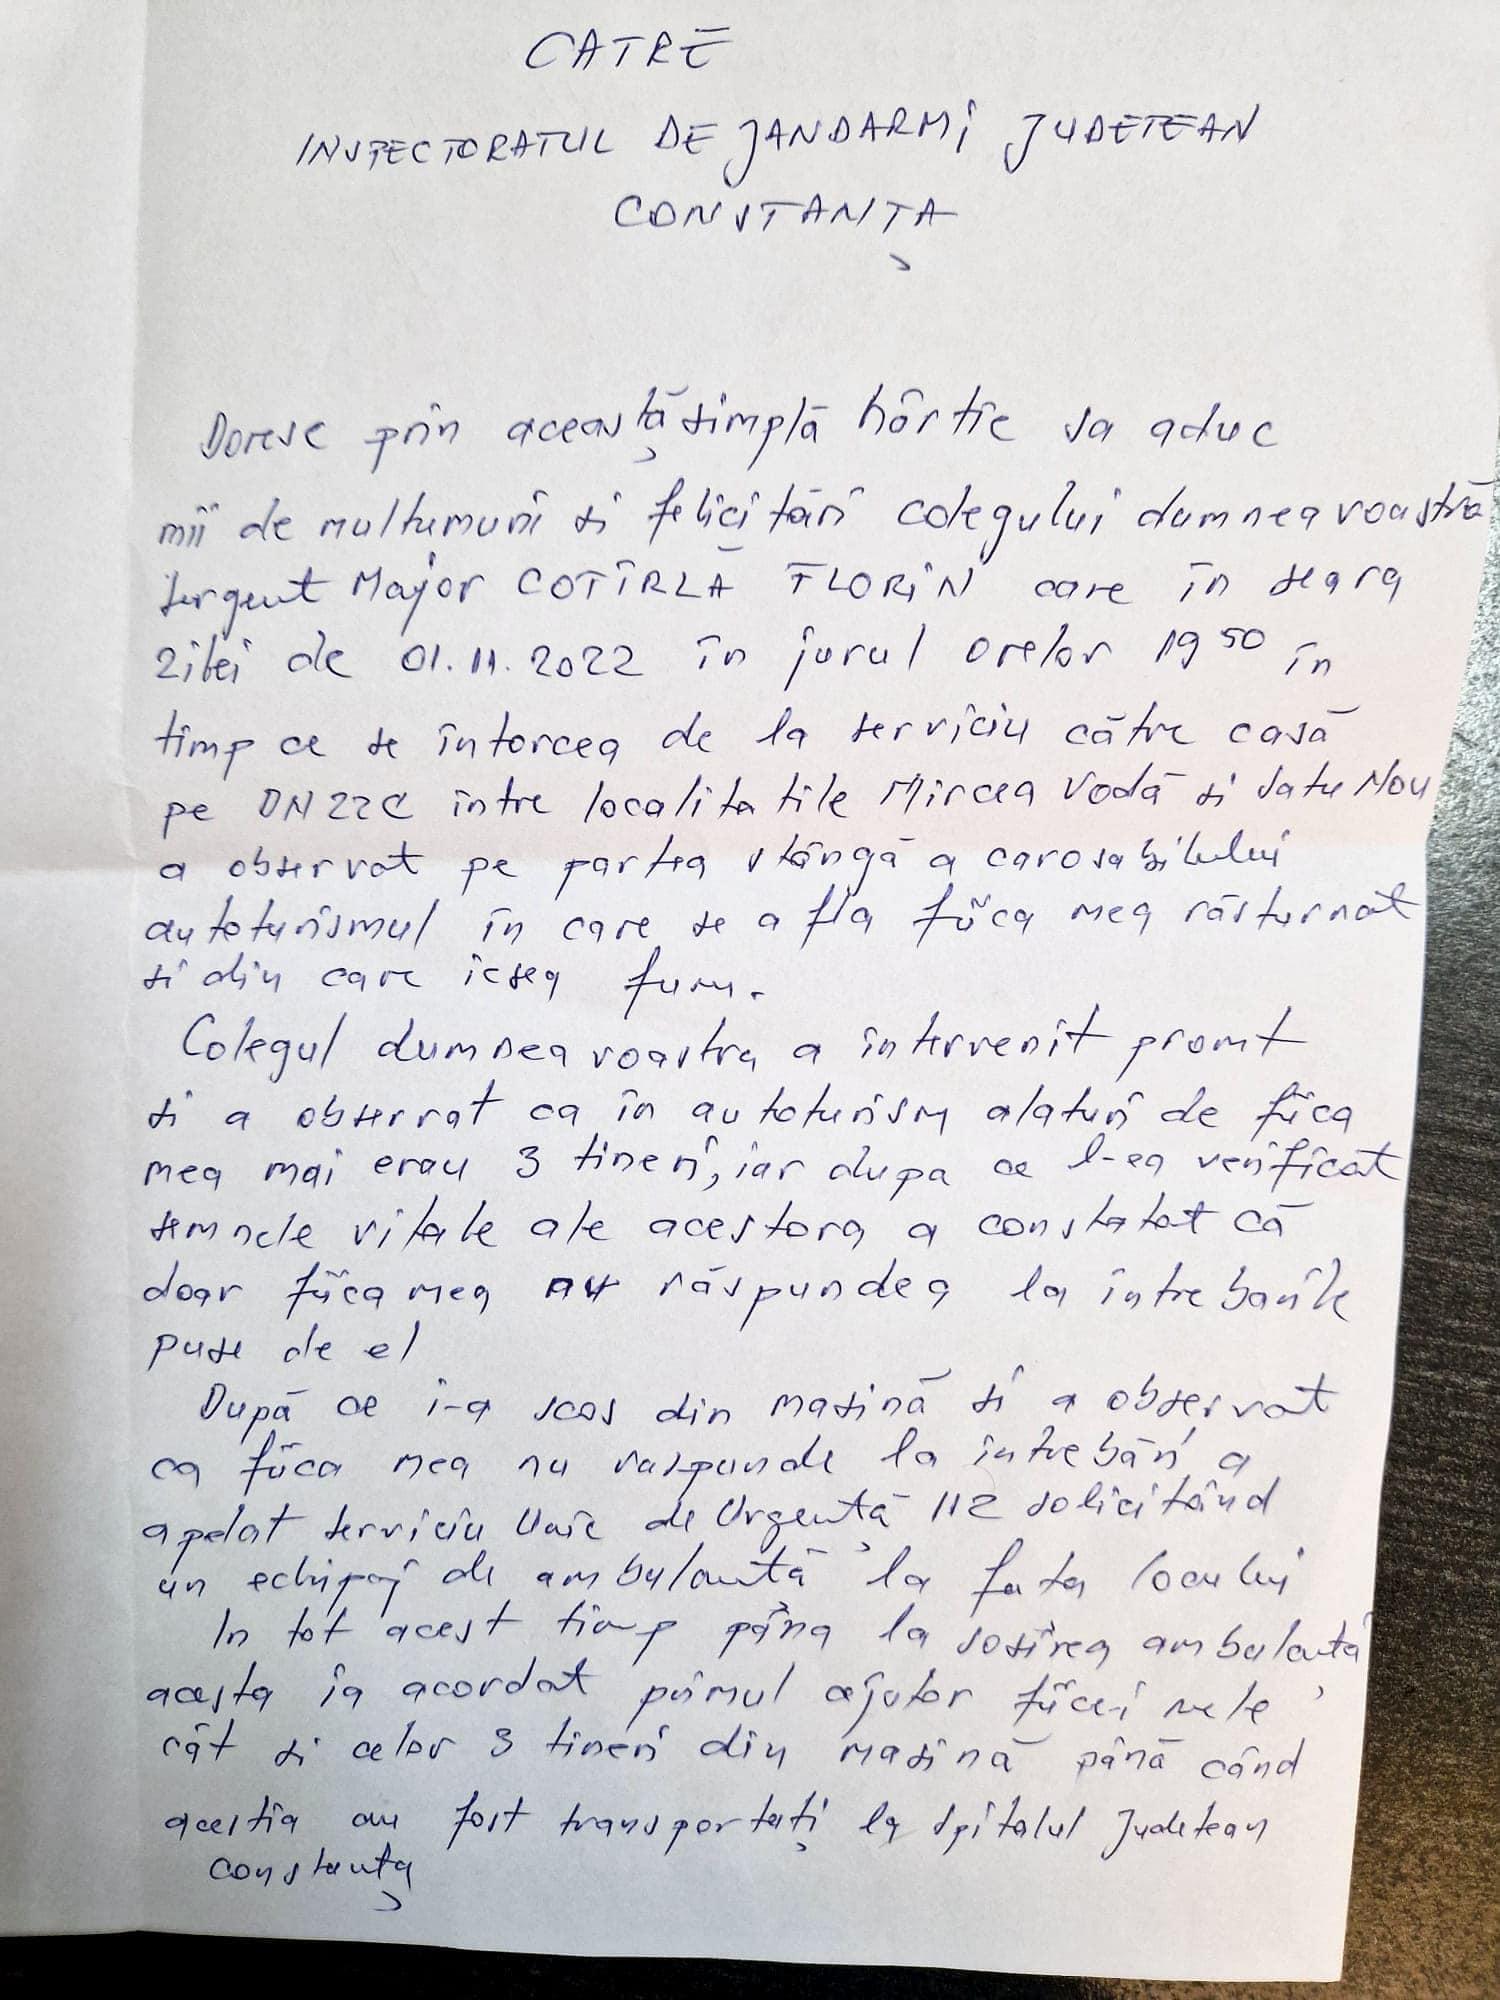 CATRE
INSPECTORATUL DE JANDARMI JUDETEAN
CONSTANȚA
Doresc prin această simplă hârtie sa aduc
mii de multumuri si felicitări colegului dumneavoastră
Sergent Major COTÎRLĂ FLORIN care în seara
zilei de 01.11.2022 în jurul orelor 19 50 în
timp ce se întorcea de la serviciu către casă
pe DN22C între localitatile Mircea Vodă si Satu Nou
a observat pe partea stângă a carosabilului
autoturismul în care se afla fiica mea răsturnat
si din care iesea fum.
Colegul dumneavoastra a intervenit promt
si a observat ca în autoturism alaturi de fiica
mea mai erau 3 tineri, iar dupa ce l-ea verificat
semnele vitale ale acestora a constatat că
doar fiica mea nu răspundea la intrebarile
puse de el
După ce i-a scos din masină si a observat
ca fiica mea nu raspunde la întrebări a
apelat serviciu Unic de Urgență 112 solicitând
un echipaj de ambulantă la fata locului
In tot acest timp pâna la sosirea ambulanță
acesta ia acordat primul ajutor fiicei mele
cât si celor 3 tineri din masină până când
acestia au fost transportați la Spitalul Judetean
Constanța